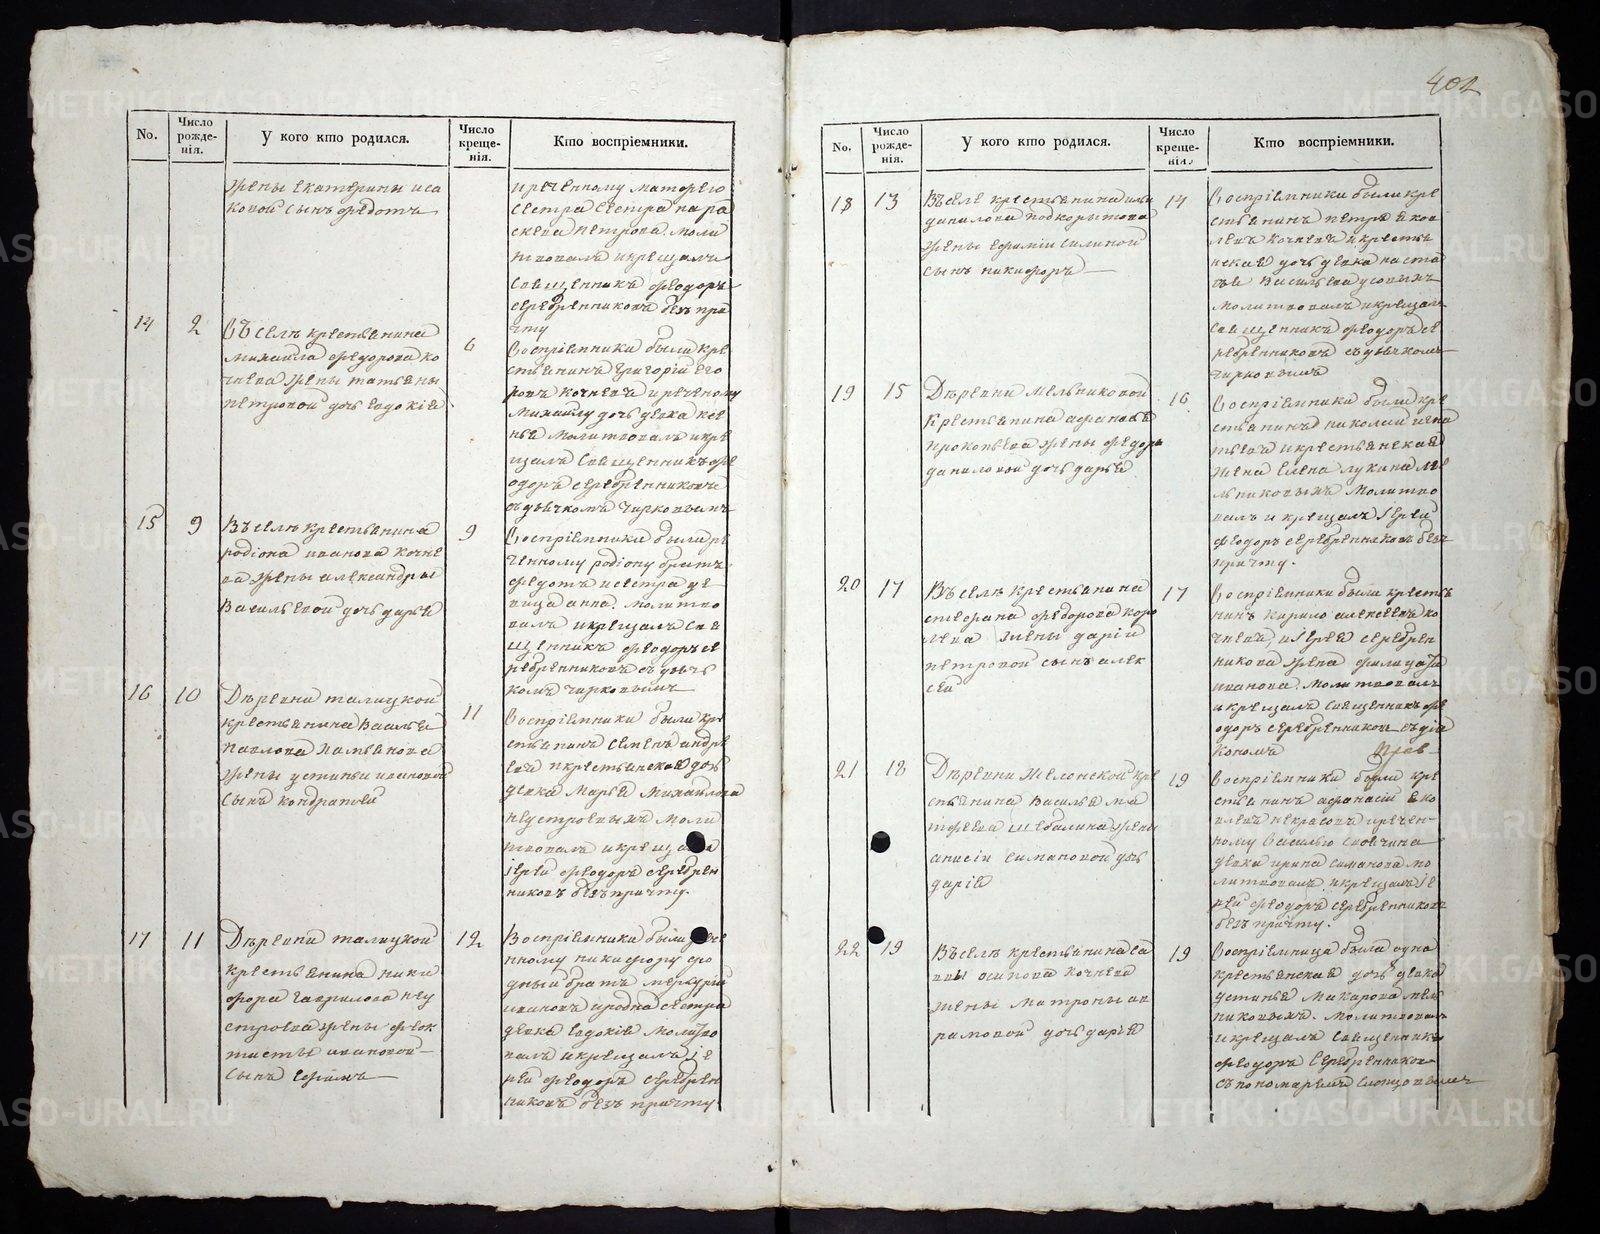 402
No.
Число рожде-нія.
У кого кто родился.
Число креще-нія.
Кто воспріемники.
жены екатерины иса
ковой сынъ федотъ
и реченному
сестра сестра пара
скева петрова. моли
твовалъ и крещалъ
священникъ феодоръ
серебренниковъ безъ при
чту
14
2
Въ селѣ крестьянина
михаила федорова ко
чнева жены татьяны
петровой дочь евдокія
6
Воспріемники были кре
стьянинъ григорій его
ровъ кочневъ и реченному
михаилу дочь девка ксе
нья молитвовалъ и кре
щалъ священникъ фе
одоръ серебренниковъ
съ дьячкомъ чирковымъ
15
9
Въ селѣ крестьянина
родіона иванова кочне
ва жены александры
васильевой дочь дарья
9
Воспріемники были ре
ченному родіону братъ
федотъ и сестра де
вица анна. молитво
валъ и крещалъ свя
щенникъ феодоръ се
ребренниковъ съ дьяч
комъ чирковымъ
16
10
Деревни талицкой
крестьянина василья
павлова
жены устиньи ивановой
сынъ кондратей
11
Воспріемники были кре
стьянинъ семенъ андре
евъ и крестьянская дочь
девка марья михайлова
неустроевыхъ моли
твовалъ и крещалъ
іерей феодоръ серебрен
никовъ безъ причту.
17
11
Деревни талицкой
крестьянина ники
фора гаврилова неу
строева жены феок
тисты ивановой
сынъ ефимъ
12
Воспріемники были рече
нному никифору ро
дный братъ меркурій
ивановъ и родна сестра
девка евдокія молитво
валъ и крещалъ іе
рей феодоръ серебрен
никовъ безъ причту
No.
Число рожде-нія.
У кого кто родился.
Число креще-нія.
Кто воспріемники.
18
13
Въ селе крестьянина ильи
данилова подкорытова
жены ефиміи силиной
сынъ никифоръ
14
Воспріемники были кре
стьянинъ петръ яков
левъ кочневъ и крестья
нская дочь девка наста
сья васильева усовыхъ
молитвовалъ и крещалъ
священникъ феодоръ се
ребренниковъ съ дьячкомъ
чирковымъ
19
15
Деревни мельниковой
крестьянина афанасья
прокопьева жены федоры
даниловой дочь дарья
16
Воспріемники были кре
стьянинъ николай игна
тьевъ и крестьянская
жена елена лукина ме
льниковыхъ молитво
валъ и крещалъ іерей
феодоръ серебренниковъ безъ
причту.
20
17
Въ селѣ крестьянина
степана федорова коро
лева жены даріи
петровой сынъ алек
сей
17
Воспріемники были крестья
нинъ кирило алексеевъ ко
чневъ, и іерея серебрен
никова жена фелицата
иванова. молитвовалъ
и крещалъ священникъ фе
одоръ серебренниковъ съ діа
кономъ
21
18
Деревни желонской кре
стьянина василья ма
тфеева шебалина жены
анисіи симановой дочь
дарія
19
Воспріемники были кре
стьянинъ афанасій яко
влевъ некрасовъ и речен
ному василью своячина
девка ирина симанова мо
литвовалъ и крещалъ іе
рей феодоръ серебренниковъ
безъ причту.
22
19
Въ селѣ крестьянина са
ввы осипова кочнева
жены матроны ав
рамовой дочь дарія
19
Воспріемница была одна
крестьянская дочь девка
устинья макарова мель
никовыхъ. молитвовалъ
и крещалъ священникъ
феодоръ серебренниковъ
съ пономаремъ слопцовымъ